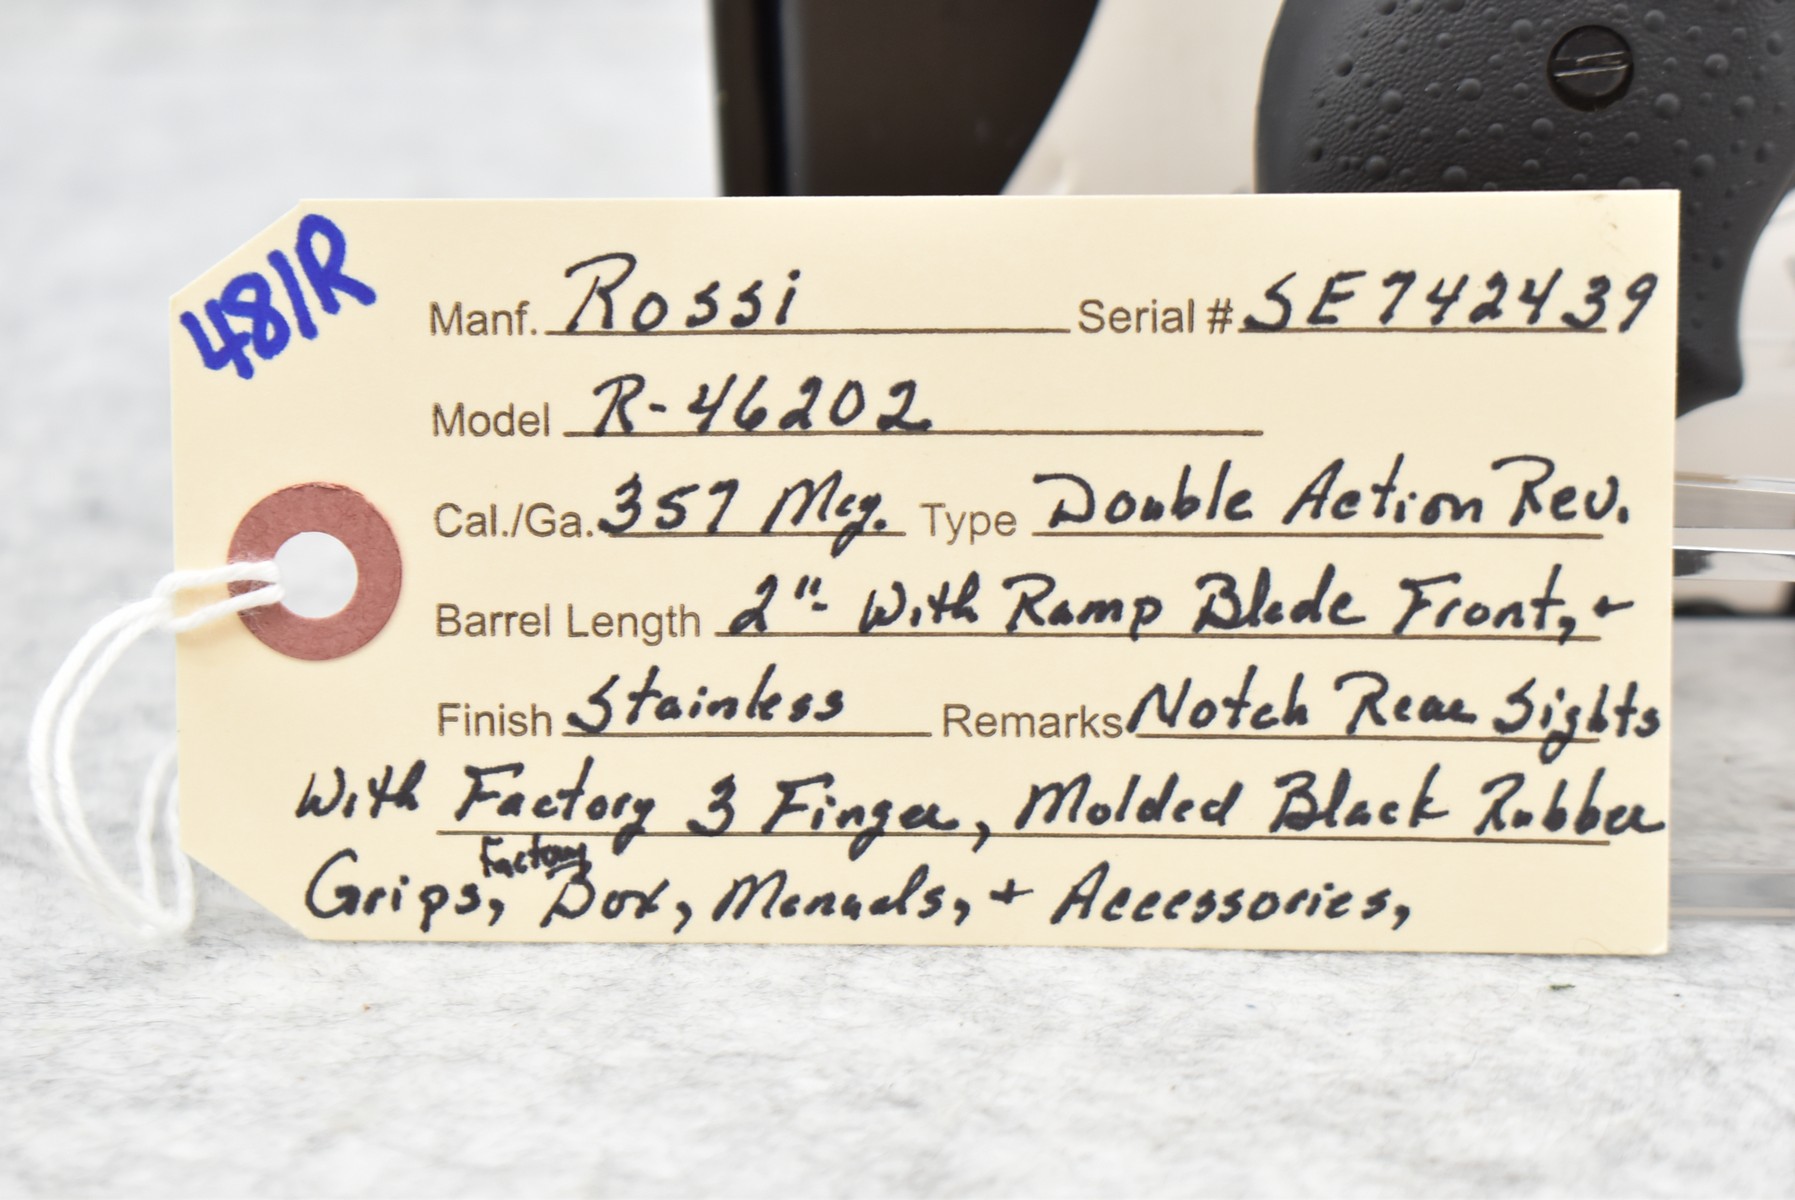 481R
Manf. Rossi Serial # SE742439
Model R-46202
Cal./Ga. 357 Mag. Type Double Action Rev.
Barrel Length 2"- With Ramp Blade Front, +
Finish Stainless Remarks Notch Rear Sights
With Factory 3 Finger, Molded Black Rubber
Factory
Grips, Box, Manuals, + Accessories,